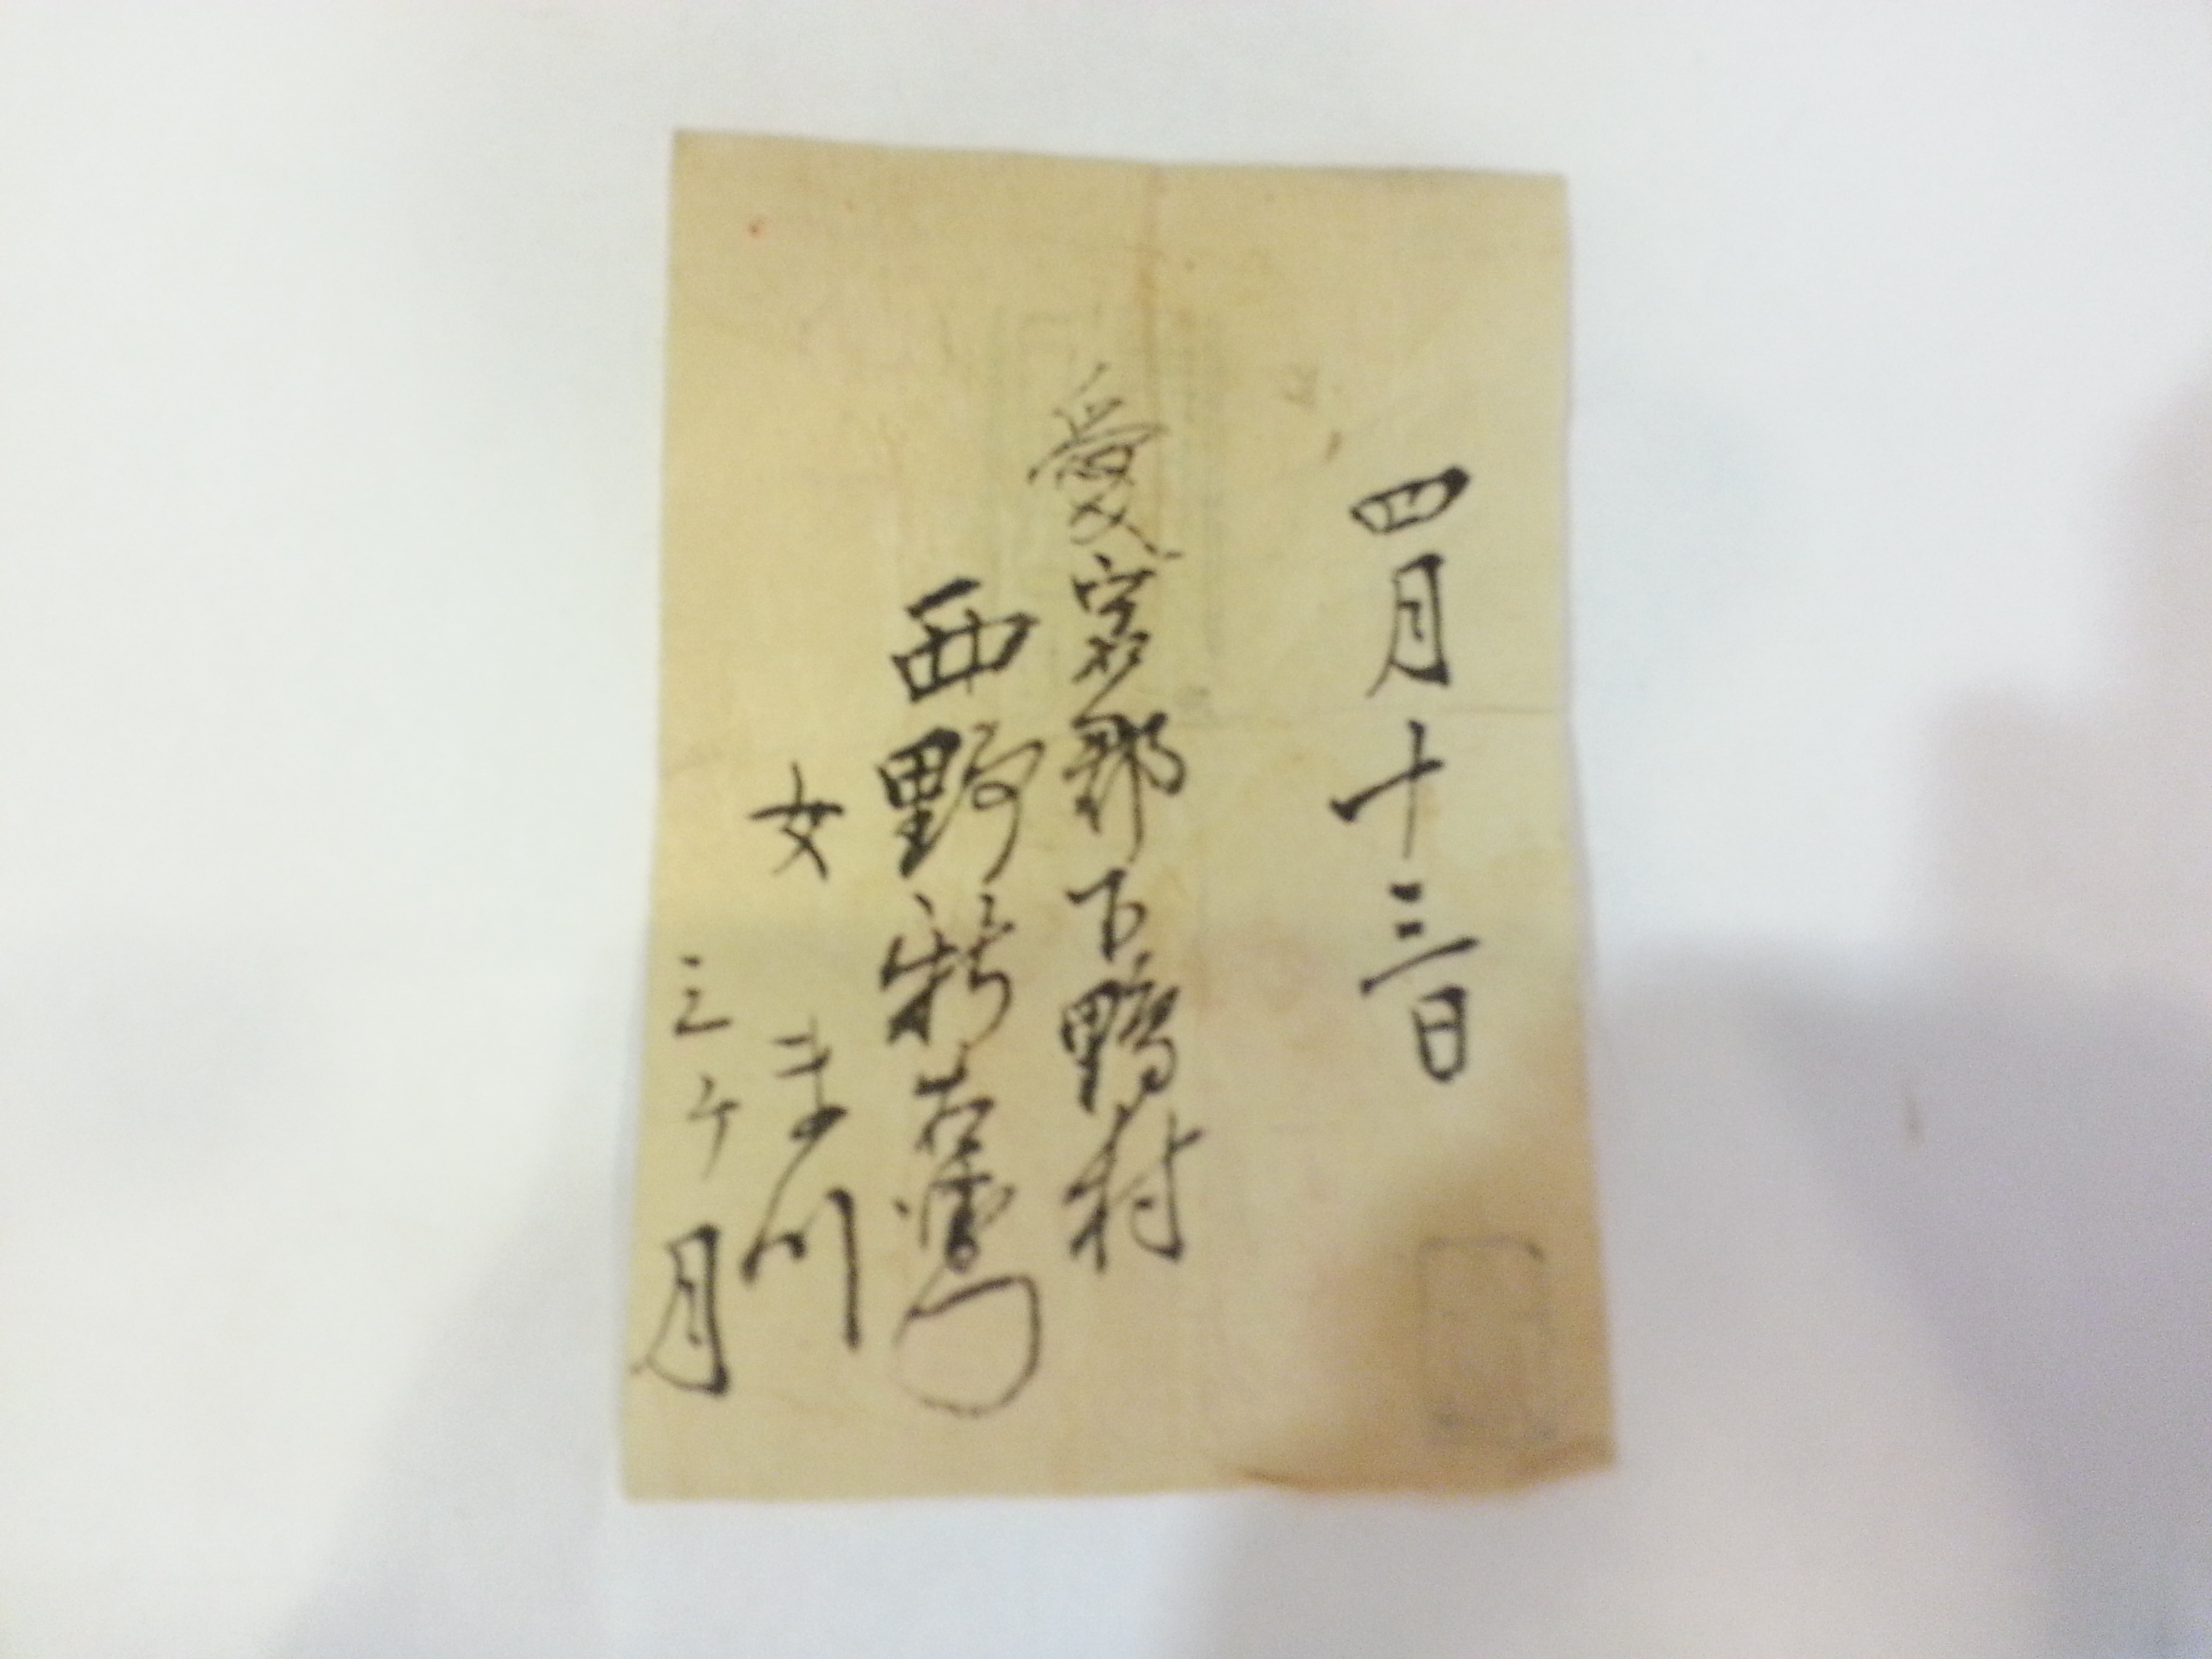 四月十三日
愛宕郡下鴨村
西野新右衛門
女 ま川
三ケ月